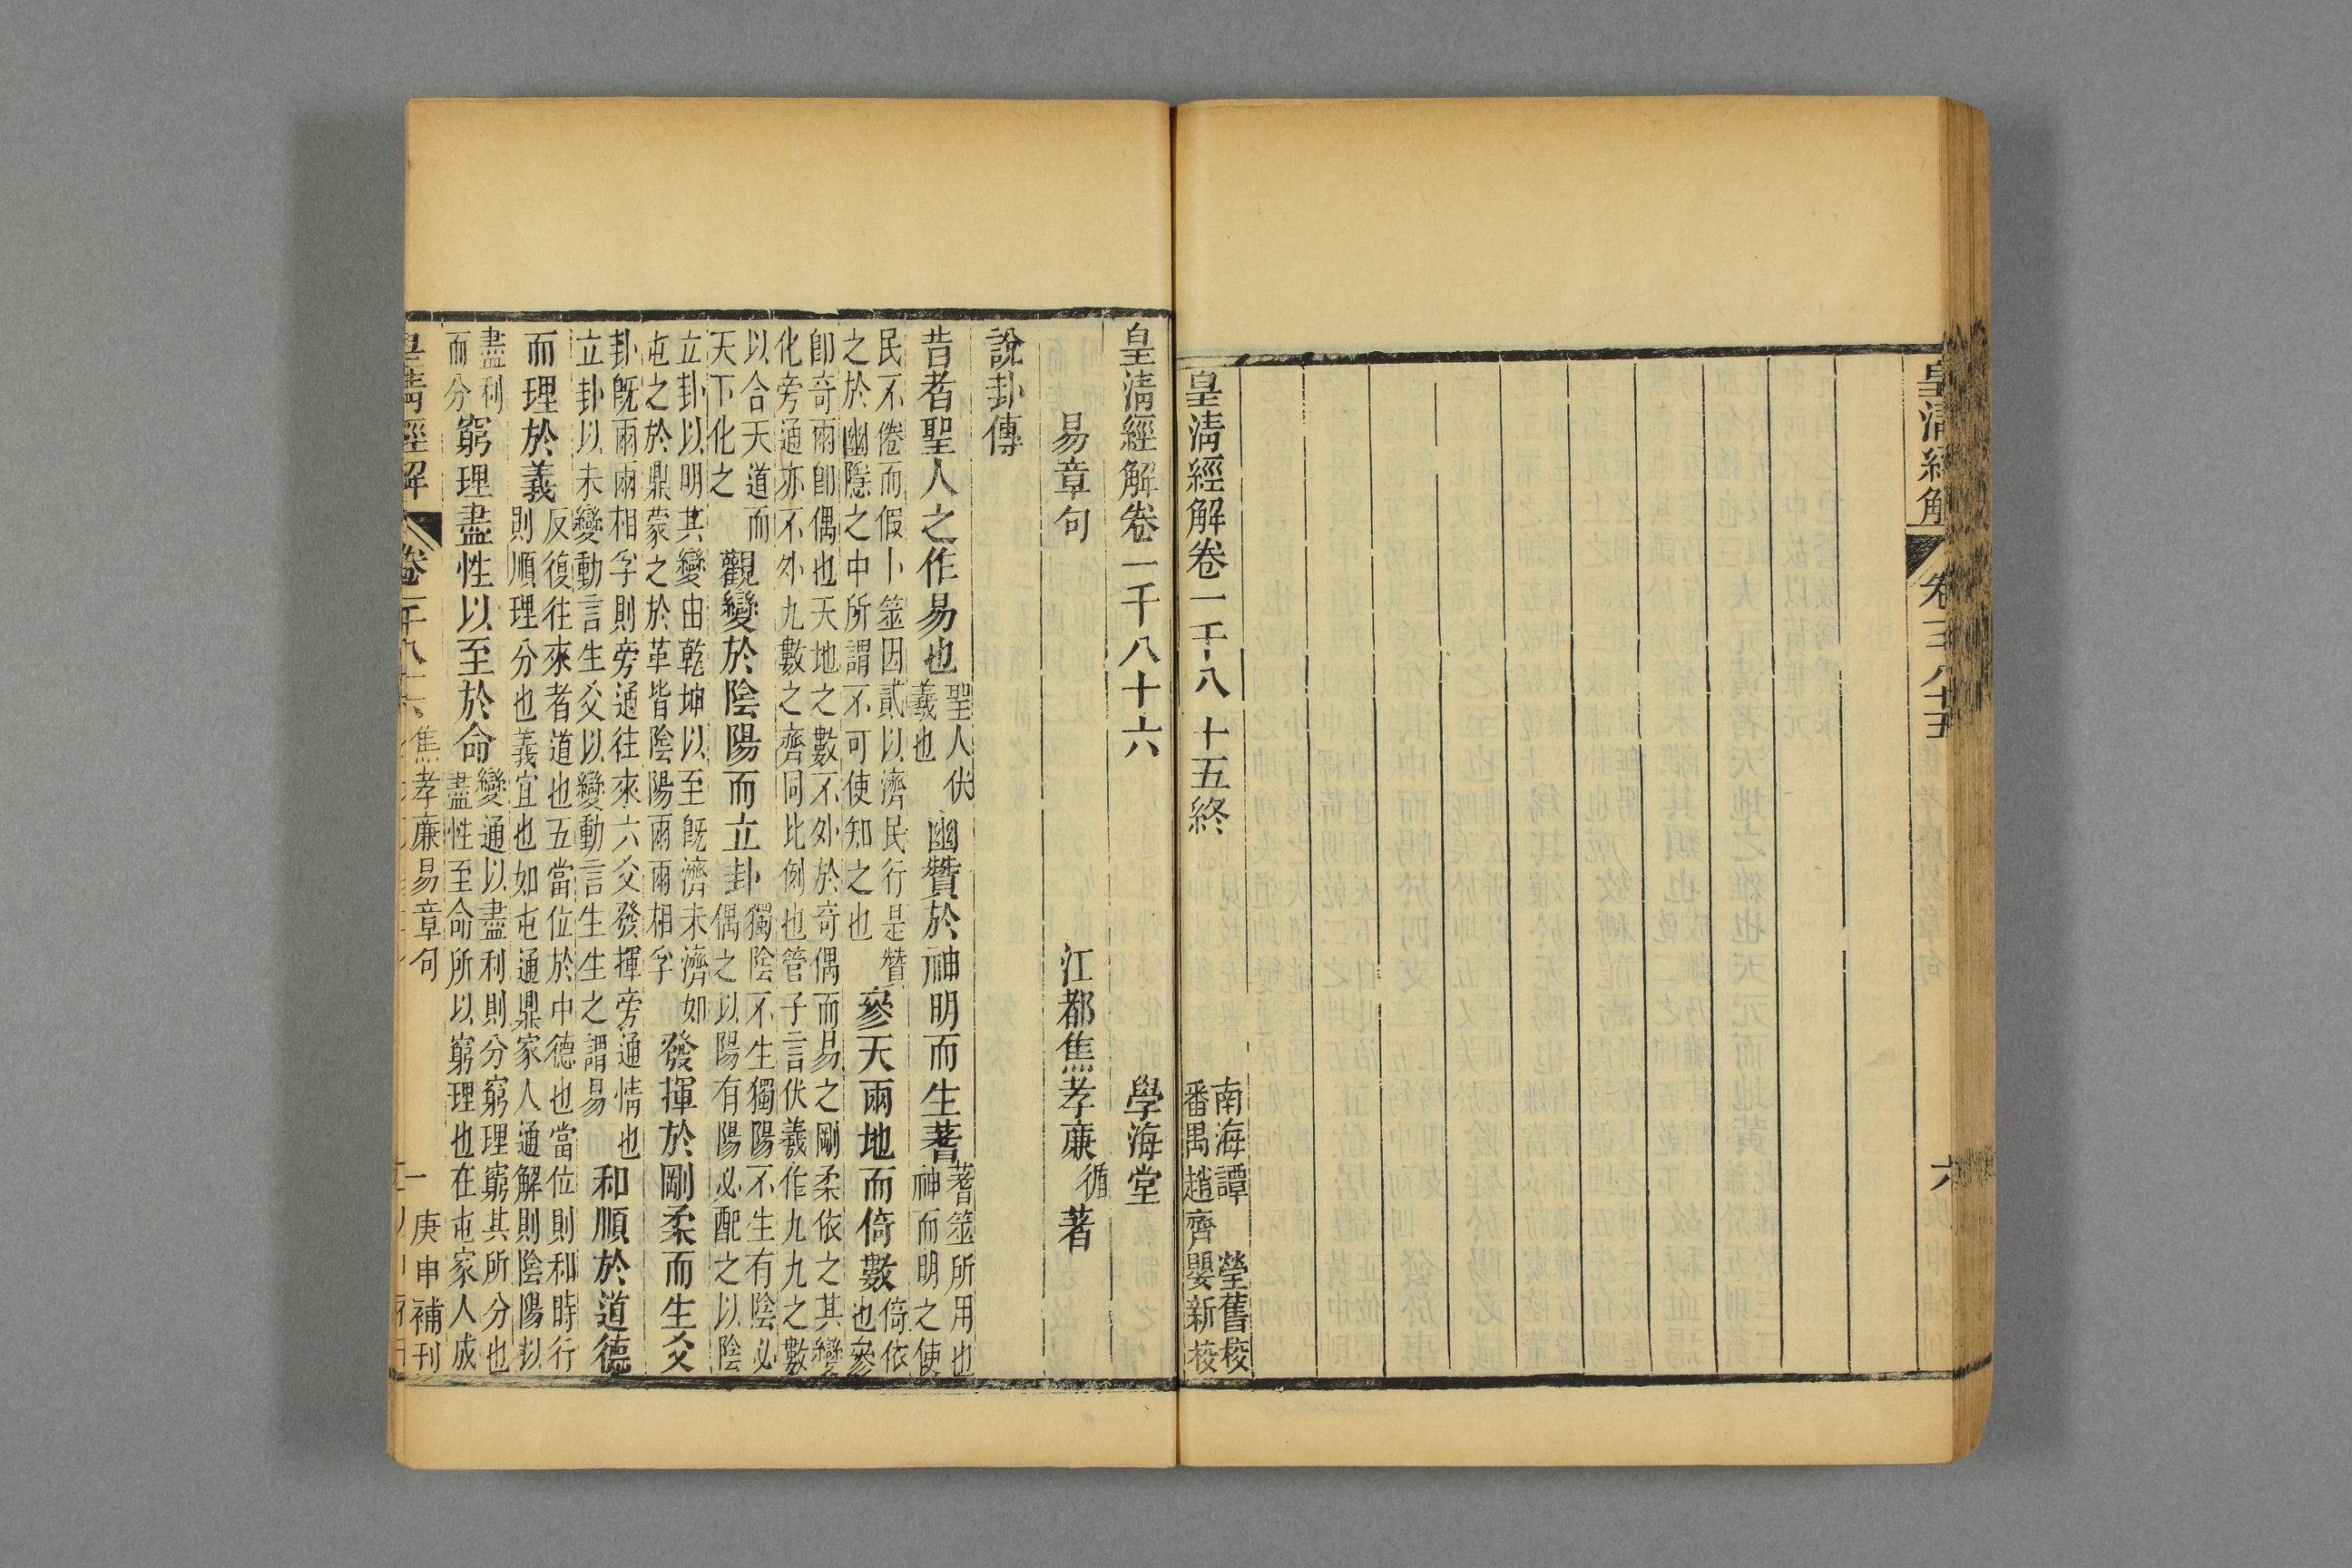 皇清經解 卷一千八十五 六
皇清經解卷一千八十五終 南海譚瑩舊校
番禺趙齊嬰新校
皇清經解卷一千八十六 學海堂
易章句 江都焦孝廉循著
說卦傳
昔者聖人之作易也聖人伏羲也幽贊於神明而生蓍蓍筮所用也神而明之使
民不倦而假卜筮因貳以濟民行是贊之於幽隱之中所謂不可使知之也參天兩地而倚數倚依也參
卽奇兩卽偶也天地之數不外於奇偶而易之剛柔依之其變化旁通亦不外九數之齊同比例也管子言伏羲作九九之數
以合天道而天下化之觀變於陰陽而立卦獨陰不生獨陽不生有陰必偶之以陽有陽必配之以陰
立卦以明其變由乾坤以至旣濟未濟如屯之於鼎蒙之於革皆陰陽兩兩相孚發揮於剛柔而生爻
卦旣兩兩相孚則旁通往來六爻發揮旁通情也立卦以未變動言生爻以變動言生生之謂易和順於道德
而理於義反復往來者道也五當位於中德也當位則和時行則順理分也義宜也如屯通鼎家人通解則陰陽以
盡利而分窮理盡性以至於命變通以盡利則分窮理窮其所分也盡性至命所以窮理也在屯家人成
皇清經解 卷一千八十六 焦孝廉易章句 一 庚申補刊